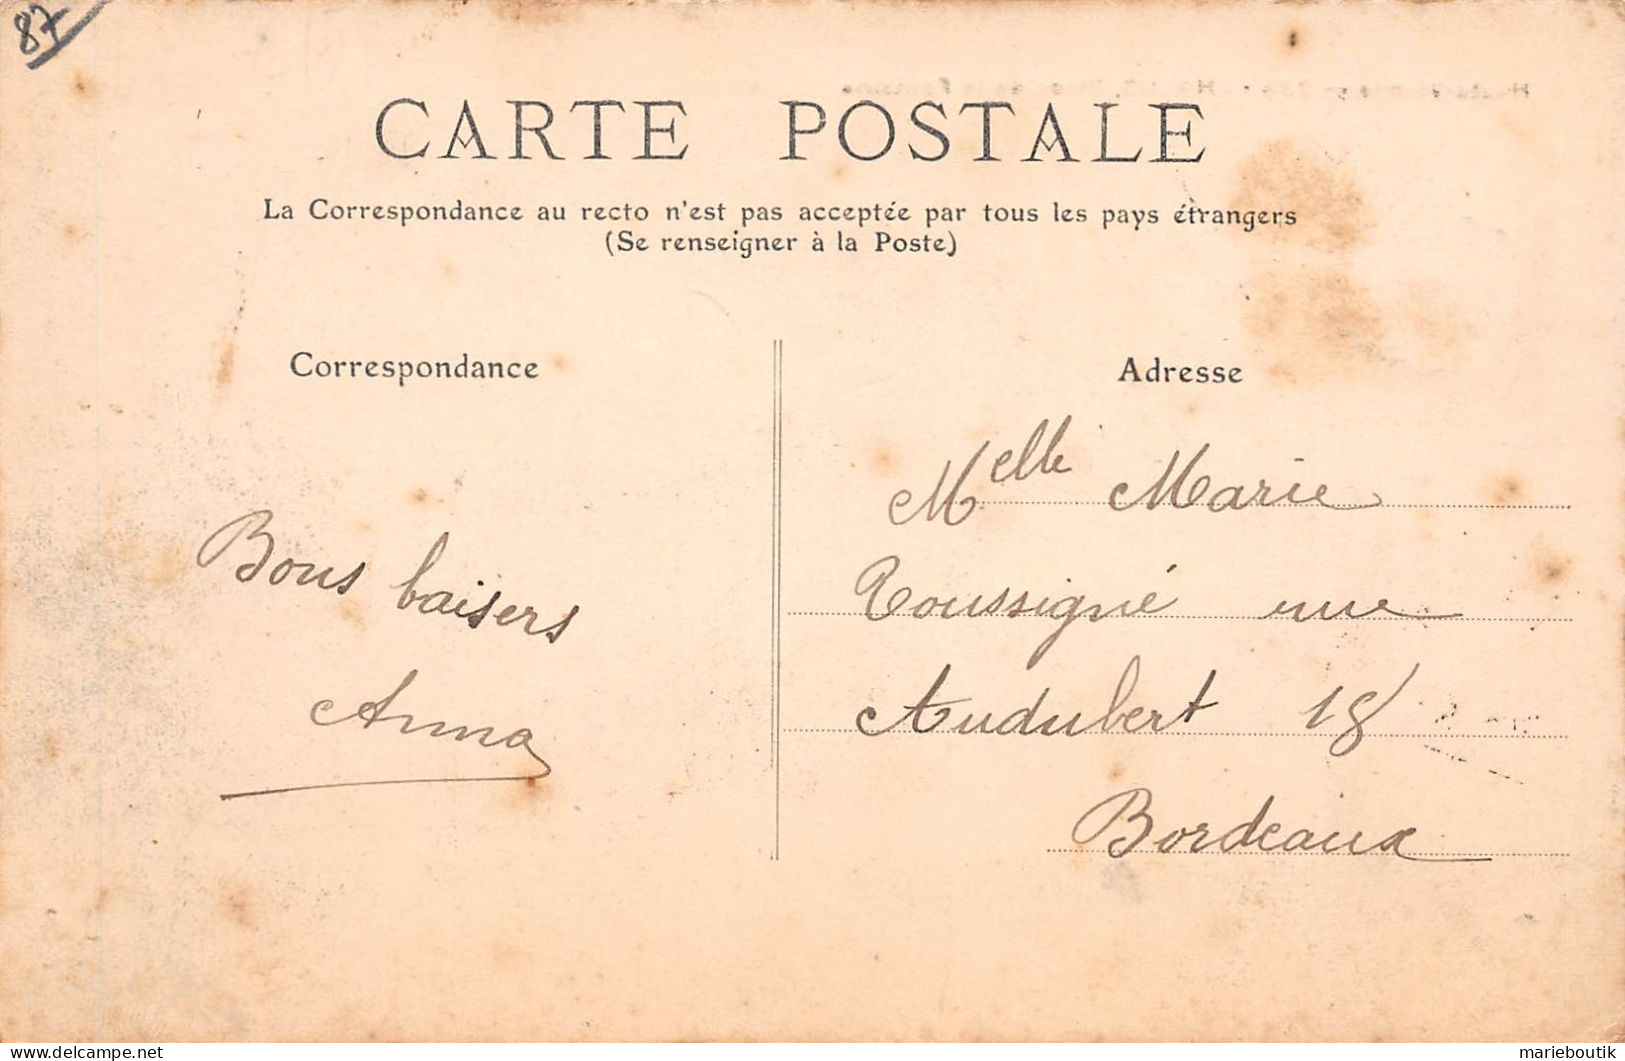 87
CARTE POSTALE
La Correspondance au recto n'est pas acceptée par tous les pays étrangers
(Se renseigner à la Poste)
Correspondance
Bons baisers
Anna
Adresse
Melle Marie
Toussigné rue
Audubert 18
Bordeaux
marieboutik